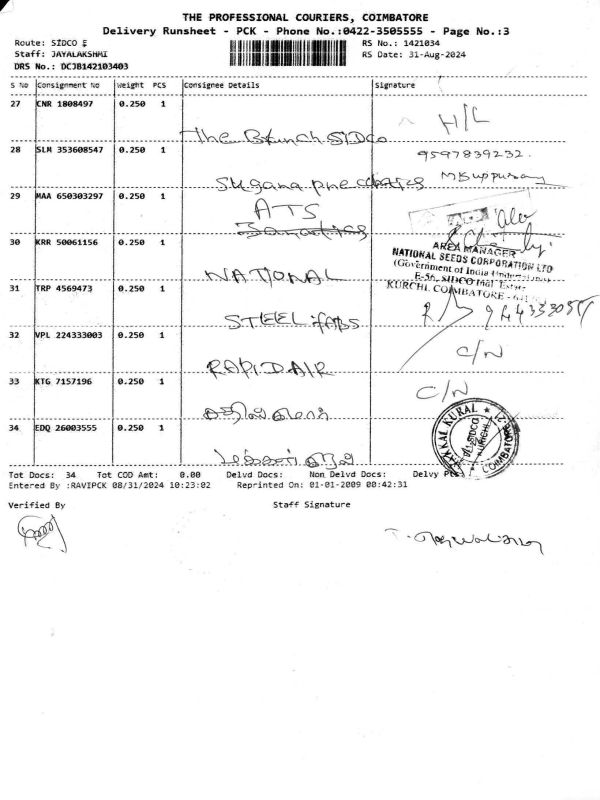 THE PROFESSIONAL COURIERS, COIMBATORE
Delivery Runsheet - PCK - Phone No.:0422-3505555 - Page No.:3
Route: SIDCO E
RS No.: 1421034
Staff: JAYALAKSHMI
RS Date: 31-Aug-2024
DRS No.: DCJB142103403
S No Consignment No Weight PCS Consignee Details Signature
27 CNR 1808497 0.250 1
H/L
The Branch SIDCO
28 SLM 353608547 0.250 1
9597839232.
Sugana
M Kuppusamy
29 MAA 650303297 0.250 1
ATS
30 KRR 50061156 0.250 1
AREA MANAGER
NATIONAL SEEDS CORPORATION LTD
(Government of India
E-56, SIDCO Indl. Estate
KURCHI, COIMBATORE -
NATIONAL
31 TRP 4569473 0.250 1
STEEL FABS
32 VPL 224333003 0.250 1
C/N
RAPID AIR
33 KTG 7157196 0.250 1
C/N
34 EDQ 26003555 0.250 1
MAKKAL KURAL
SIDCO
KURICHI
COIMBATORE
மக்கள் குரல்
Tot Docs: 34 Tot COD Amt: 0.00 Delvd Docs: Non Delvd Docs: Delvy Pts
Entered By :RAVIPCK 08/31/2024 10:23:02 Reprinted On: 01-01-2009 00:42:31
Verified By Staff Signature